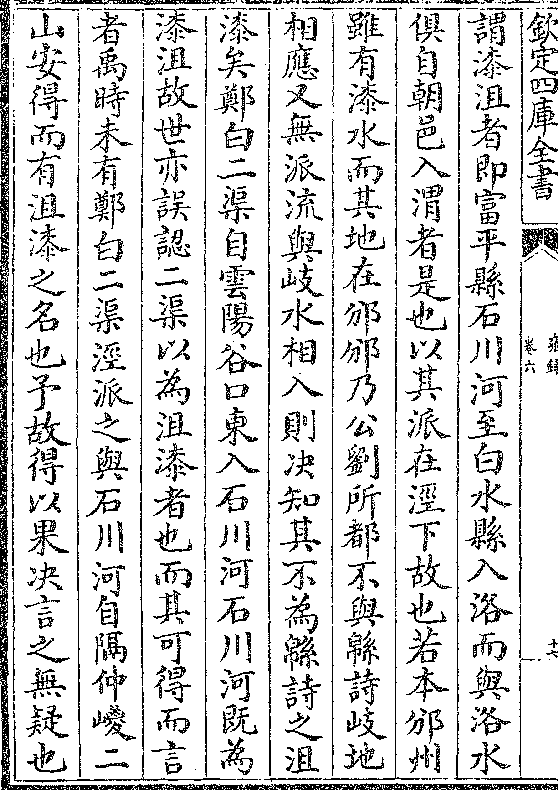 欽定四庫全書
雍録
卷六
謂漆沮者即富平縣石川河至白水縣入洛而與洛水
俱自朝邑入渭者是也以其派在涇下故也若本邠州
雖有漆水而其地在邠邠乃公劉所都不與緜詩岐地
相應又無派流與岐水相入則决知其不為緜詩之沮
漆矣鄭白二渠自雲陽谷口東入石川河石川河既為
漆沮故世亦誤認二渠以為沮漆者也而其可得而言
者禹時未有鄭白二渠涇派之與石川河自隔仲嵕二
山安得而有沮漆之名也予故得以果决言之無疑也